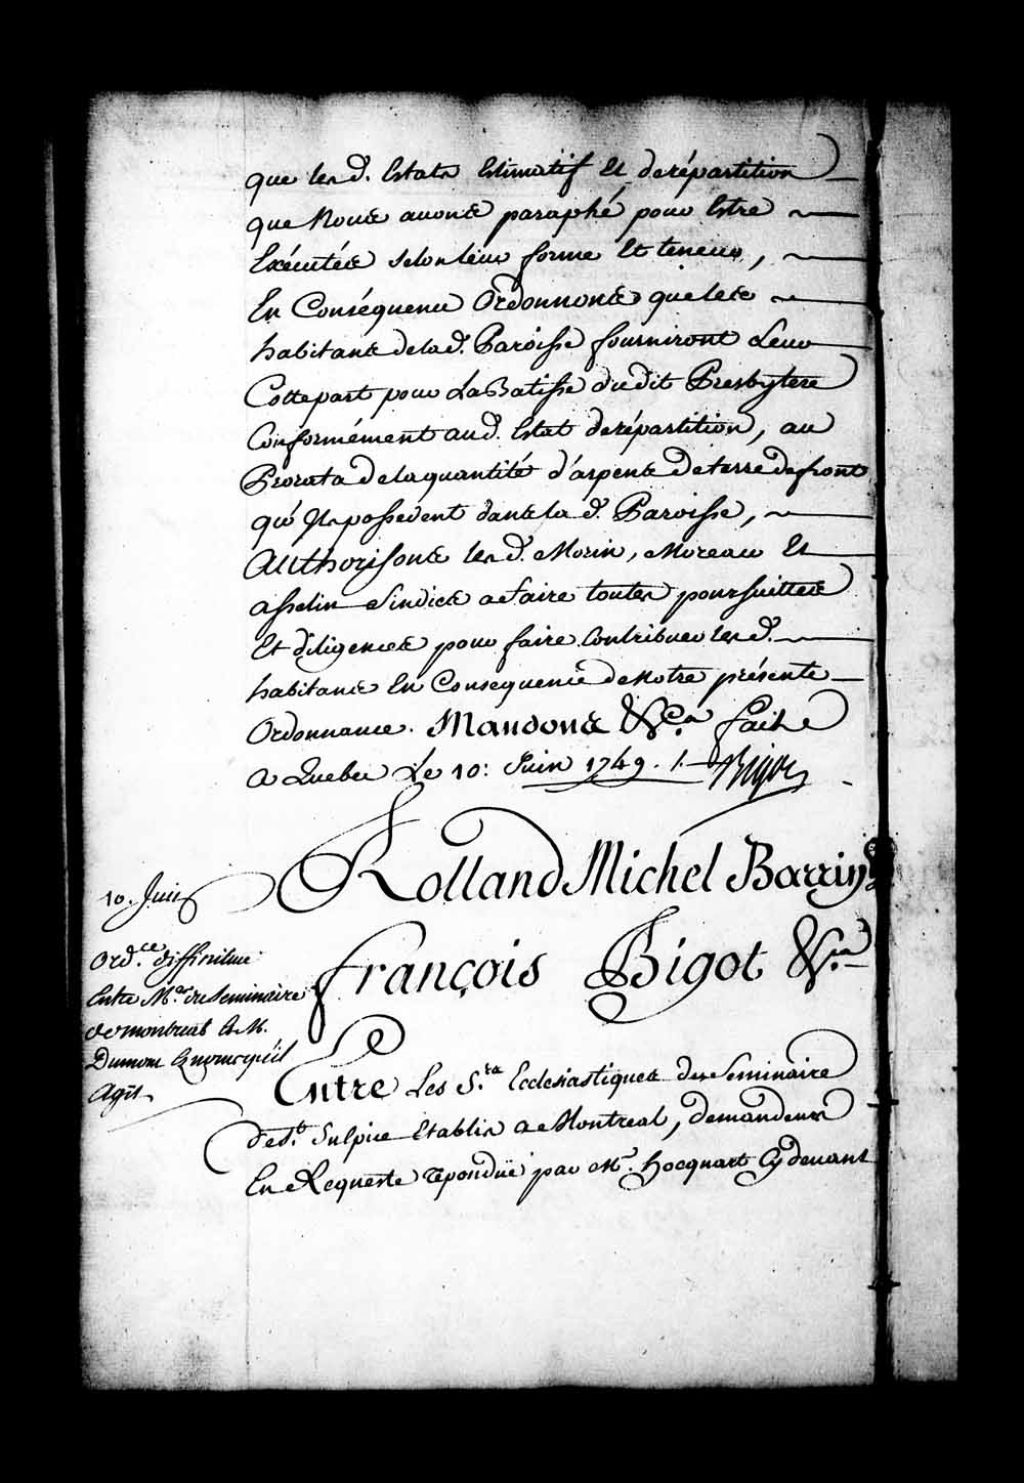 que les d. Estats Estimatif Et de répartition
que Nous avons paraphé pour Estre
Exécutés selon leur forme Et teneur,
En Conséquence Ordonnons que les
habitans de la d. Paroisse fourniront Leur
Cottepart pour La Batisse dudit Presbytere
Conformément au d. Estat de répartition, au
Prorata de la quantité d'arpens de terre de front
qu'Ils possedent dans la d. Paroisse,
Authorisons les d. Morin, Moreau Et
asselin Sindics a faire toutes poursuittes
Et diligences pour faire Contribuer les d.
habitans En Consequence de Notre présente
Ordonnance. Mandons &ca. fait
a Quebec Le 10: Juin 1749. /. Bigot
10. Juin
Ordce. diffinitive
Entre Mrs. du Seminaire
de montreal & M.
Dumont
Agit
Rolland Michel Barrin
françois Bigot &ca
Entre Les Srs. Ecclesiastiques du Seminaire
de St. Sulpice Establis a Montreal, demandeurs
En Requeste répondüe par Mr. Hocquart Cy devant